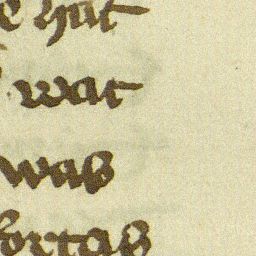 e hat
wat
was
fortas